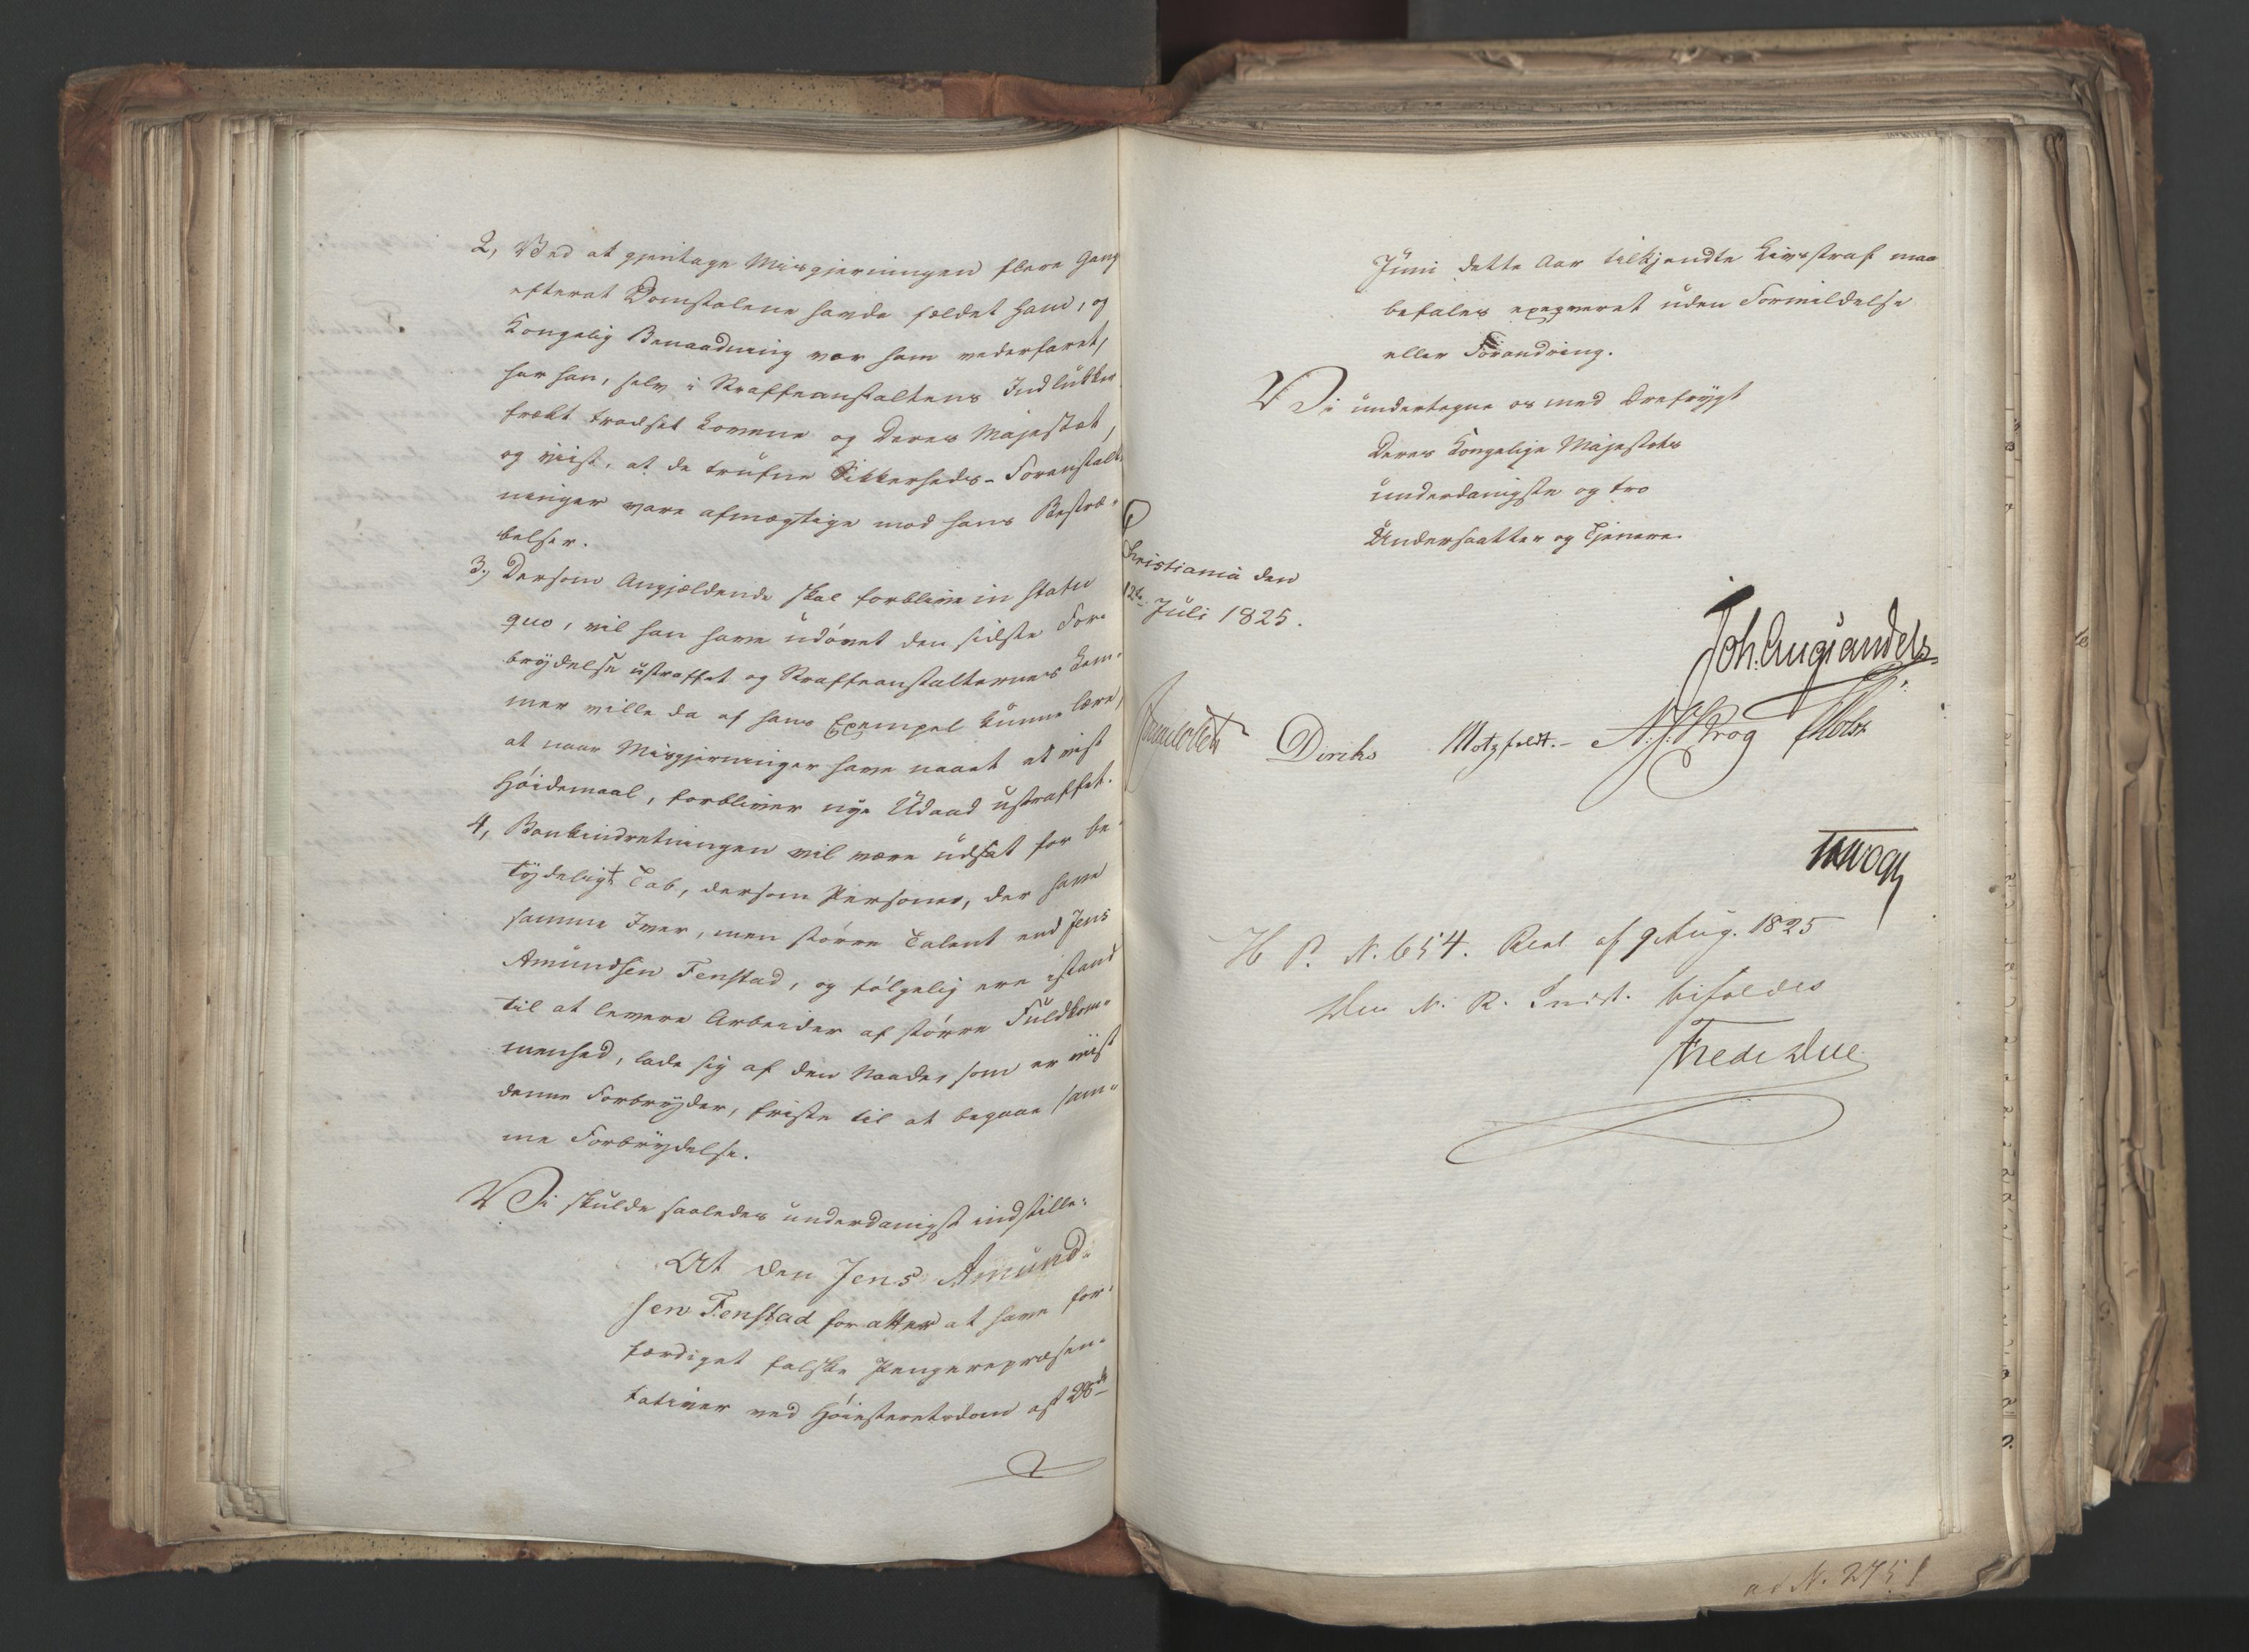 2, Ved at gjentage Misgjerningen flere Gang
efterat Domstolene havde fældet ham, og
Kongelig Benaadning var ham vederfaret,
har han, selv i Straffeanstaltens Indlukke
frækt trodset Lovene og Deres Majestæt,
og viist, at de trufne Sikkerheds-Foranstalt-
ninger vare afmægtige mod hans Bestræ-
belser.
3, Dersom Angjældende skal forblive in statu
quo, vil han have udövet den sidste For-
brydelse ustraffet og Straffeanstalternes Lem-
mer ville da af hans Exempel kunne lære,
at naar Misgjerninger have naaet et vist
Höidemaal, forbliver nye Udaad ustraffet.
4, Bankindretningen vil være udsat for be-
tydeligt Tab, dersom Personer, der have
samme Iver, men större Talent end Jens
Amundsen Fenstad, og fölgelig ere istand
til at levere Arbeider af större Fuldkom-
menhed, lade sig af den Naade, som er viist
denne Forbryder, friste til at begaae sam-
me Forbrydelse.
Vi skulde saaledes underdanigst indstille:
At den Jens Amund-
sen Fenstad for atter at have for-
færdiget falske Pengerepræsen-
tativer ved Höiesteretsdom af 28de
Juni dette Aar tilkjendte Livsstraf maa
befales exeqveret uden Formildelse
eller Forandring.
Vi undertegne os med Ærefrygt
Deres Kongelige Majestæts
underdanigste og tro
Undersaatter og Tjenere.
Christiania den
12te Juli 1825.
Joh. Aug. Sandels
Sommerfeldt Diriks Motzfeldt. N. J. Krog Holst
JHVogt
H P. N. 654. Resl. af 9 Aug. 1825
Den N. R. Indst. bifaldes
Fredr Due
ad N. 275